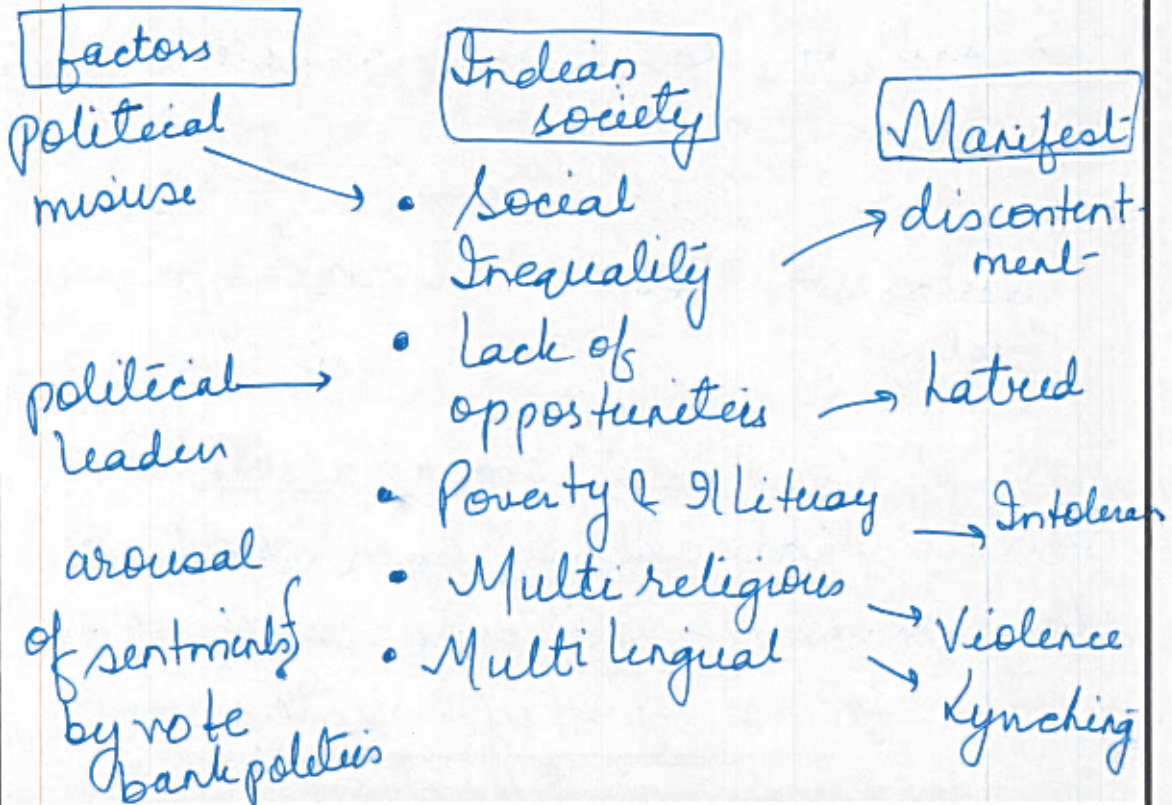 factors
political
misuse
political
leaders
arousal
of sentiments
by vote
bank politics
Indian
society
• Social
Inequality
• Lack of
opportunities
• Poverty & Illiteracy
• Multi religious
• Multi lingual
Manifest
discontent-
ment
hatred
Intoleran
Violence
Lynching